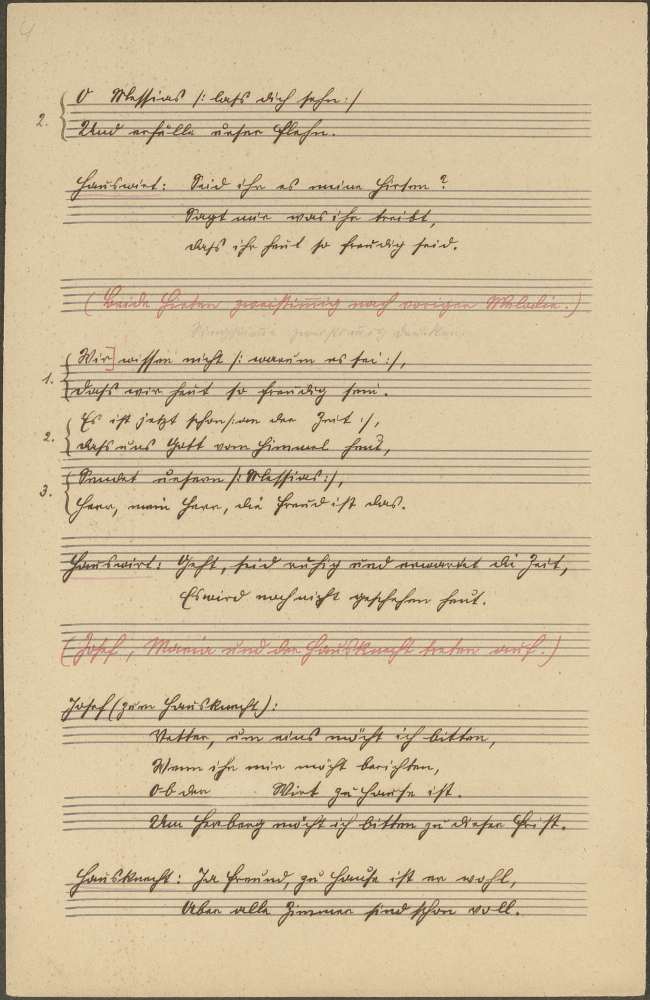 O Messias /: laß dich sehn :/
2.
Und erfülle unser Flehn.
Hauswirt: Seid ihr es meine Hirten?
Sagt mir was ihr treibt,
daß ihr heut so freudig seid.
(Beide Hirten zweistimmig nach voriger Melodie.)
Wir] wissen nicht /: warum es sei :/,
1.
daß wir heut so freudig sein.
Es ist jetzt schon /: an der Zeit :/,
2.
daß uns Gott vom Himmel heut,
Sendet unsern /: Messias :/,
3.
Herr, mein Herr, die Freud ist das.
Hauswirt: Geht, seid ruhig und erwartet die Zeit,
Es wird noch nicht geschehen heut.
(Josef, Maria und der Hausknecht treten auf.)
Josef (zum Hausknecht):
Vetter, um eins möcht ich bitten,
Wenn ihr mir möcht berichten,
Ob der Wirt zu Hause ist.
Um Herberg möcht ich bitten zu dieser Frist.
Hausknecht: Ja Freund, zu Hause ist er wohl,
Aber alle Zimmer sind schon voll.